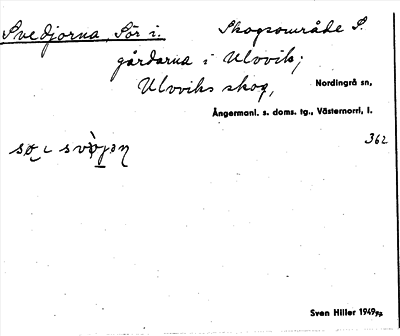 Svedjorna, Sör i. Skogsområde S.
gårdarna i Ulvvik;
Ulvviks skog,
Nordingrå sn,
Ångermanl. s. doms. tg., Västernorrl. l.
362
Sven Hiller 1949